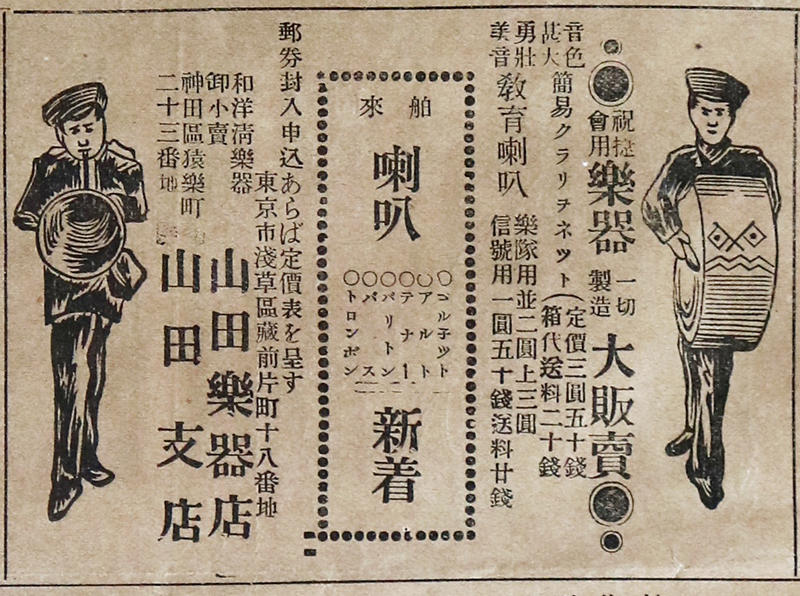 祝捷會用樂器一切製造大販賣
音色甚大簡易クラリヲネット(定價三圓五十錢
箱代送料二十錢
勇壯美音教育喇叭樂隊用並二圓上三圓
信號用一圓五十錢送料廿錢
舶來
喇叭
○コル子ット
○アルト
○テナー
○バリトン
○バス
○トロンボン
新着
郵券封入申込あらば定價表を呈す
和洋淸樂器卸小賣
東京市淺草區藏前片町十八番地
山田樂器店
神田區猿樂町二十三番地
山田支店